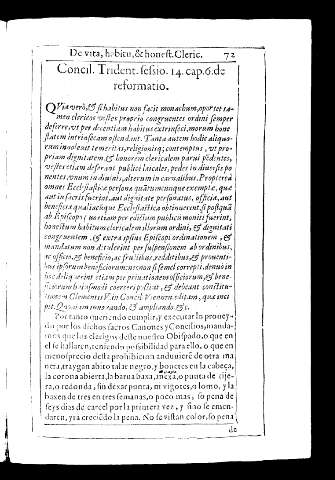 De vita, habitu, & honest. Cleric. 72
Concil. Trident. sessio. 14. cap. 6. de
reformatio.
QVia verò, & si habitus non facit monachum, oportet ta-
men clericos vestes proprio congruentes ordini semper
deferre, vt per decentiam habitus extrinseci, morum hone
statem intrinsecam ostendant. Tanta autem hodie aliquo-
rum inoleuit temeritas, religionisq; contemptus, vt pro-
priam dignitatem, & honorem clericalem parui pēdentes,
vestes etiam deferant publicè laicales, pedes in diuersis po
nentes, vnum in diuinis, alterum in carnalibus. Propterea
omnes Ecclesiasticæ personæ quātumcunque exemptæ, quæ
aut in sacris fuerint, aut dignitates personatus, officia, aut
beneficia qualiacunque Ecclesiastica obtinuerint, si postquā
ab Episcopi; etiam per edictum publicū moniti fuerint,
honestum habitum clericalem illorum ordini, & dignitati
congruentem, & iuxta ipsius Episcopi ordinationem, &
mandatum non detulerint per suspensionem ab ordinibus,
ac officio, & beneficio, ac fructibus, redditibus, & prouenti-
bus ipsorum beneficiorum: necnon si semel correpti, denuo in
hoc deliquerint etiam per priuationem officiorum, & bene-
ficiorum huiusmodi coerceri possint, & debeant constitu-
tionem Clementis V. in Concil. Vienens. editam, quæ inci-
pit. Quoniam innouando, & ampliando, &c.
Por tanto queriendo cumplir, y executar lo prouey-
do por los dichos sacros Canones y Concilios, manda-
mos que los clerigos deste nuestro Obispado, o que en
el se hallaren, teniendo possibilidad para ello, o que en
menosprecio desta prohibicion anduuierē de otra ma
nera, traygan abito talar negro, y bonetes en la cabeça,
la corona abierta, la barua baxa, a punta de tije-
ra, o redonda, sin dexar ponta, ni vigotes, o lomo, y la
baxen de tres en tres semanas, o poco mas, so pena de
seys dias de carcel por la primera vez, y si no se emen-
daren, yra creciēdo la pena. No se vistan color, so pena
de